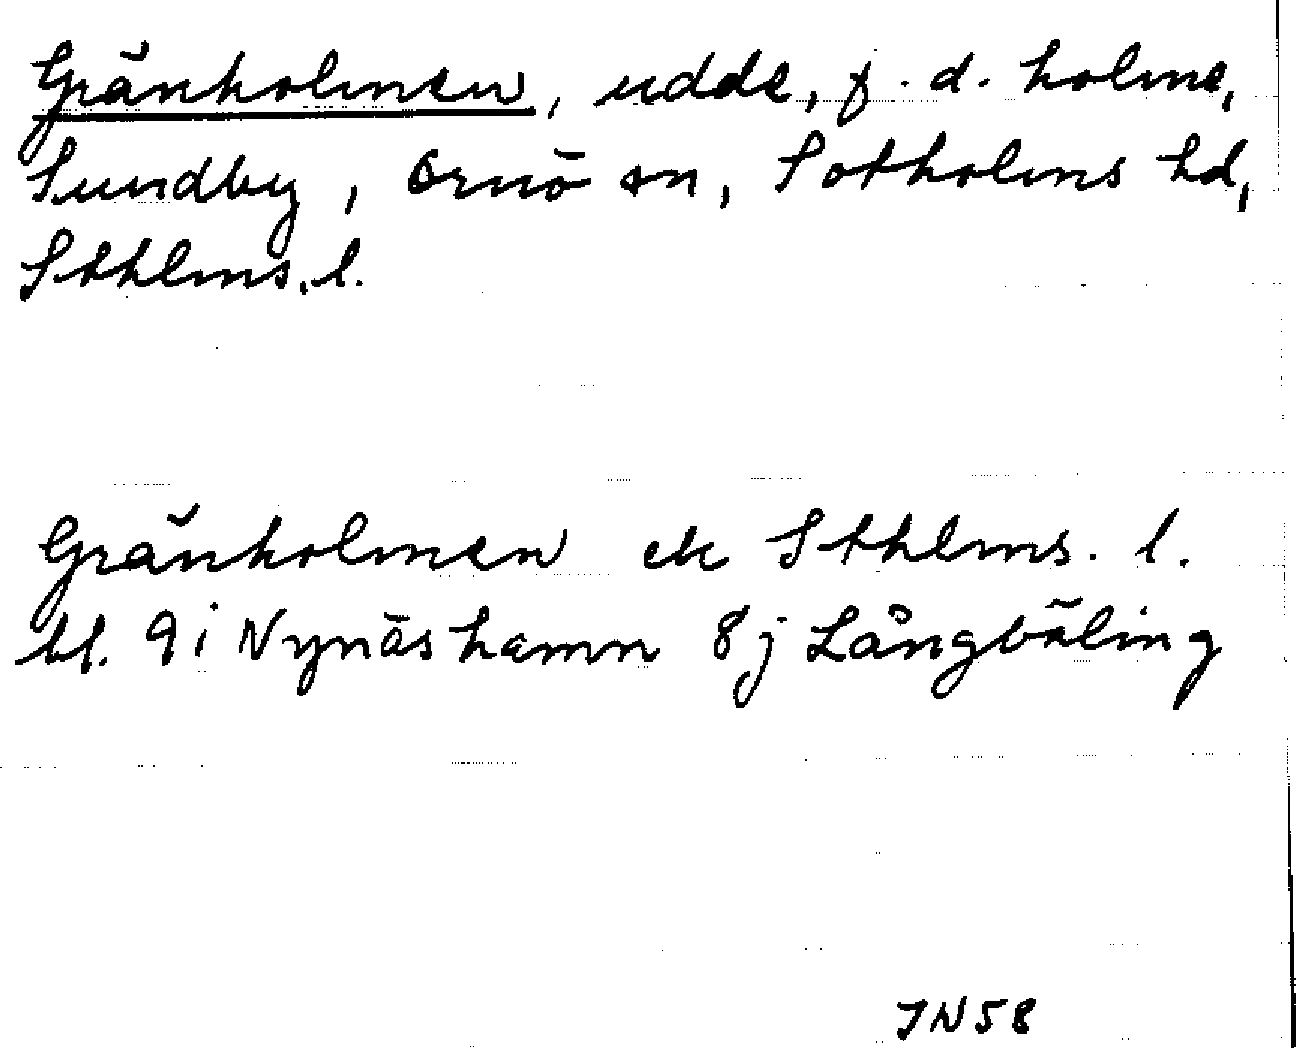 Gränholmen, udde, f. d. holme,
Sundby, Ornö sn, Sotholms hd,
Sthlms. l.
Gränholmen ek Sthlms. l.
bl. 9i Nynäshamn 8j Långbäling
JN58